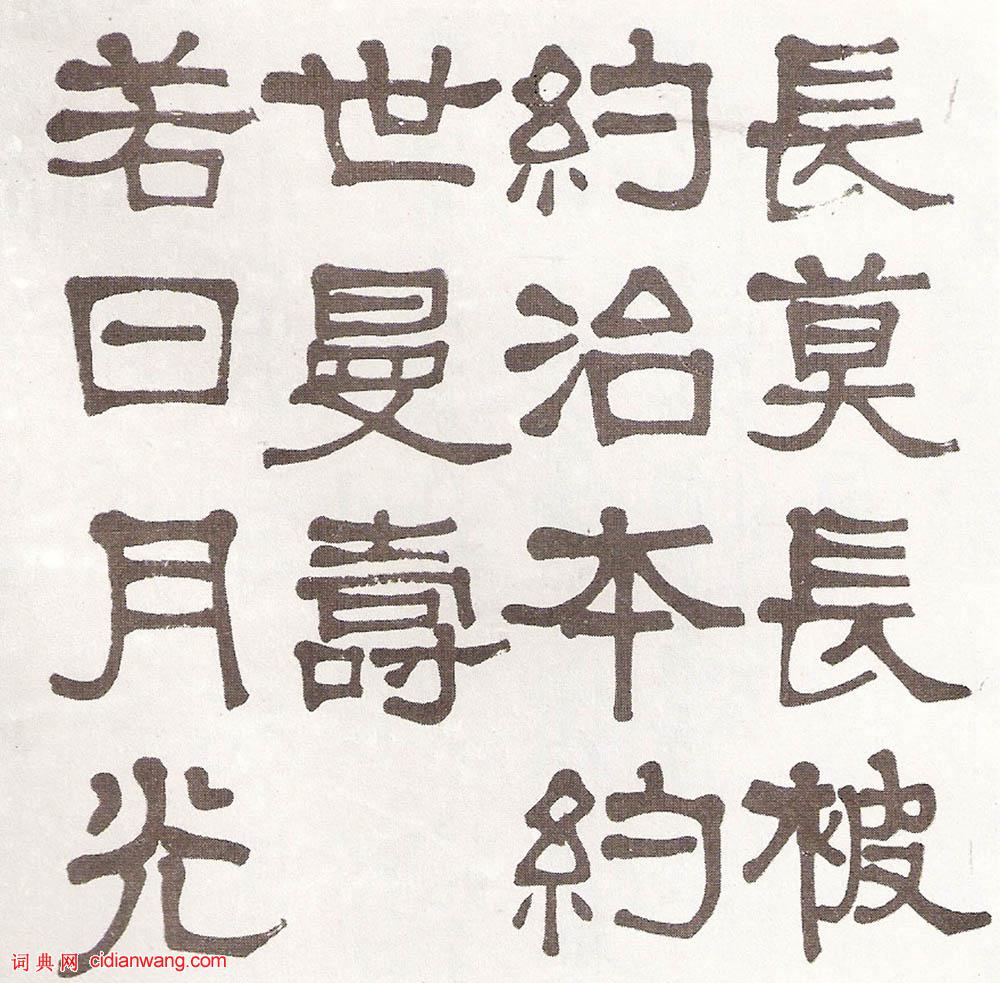 長莫長被
約治本約
世曼壽
若日月光
词典网 cidianwang.com